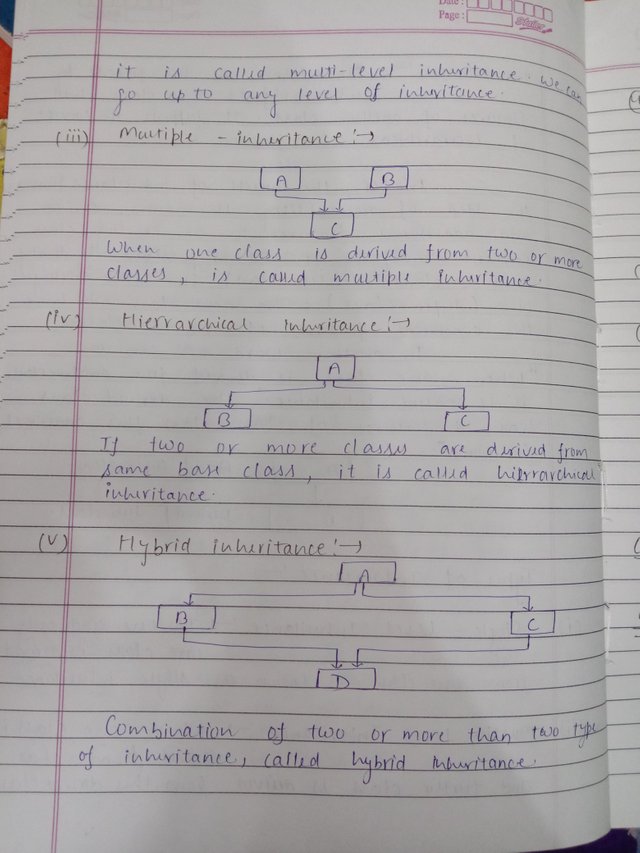 Date :
Page :
it is called multi-level inheritance. We can
go upto any level of inheritance.
(iii) Multiple - inheritance :→
A B
C
When one class is derived from two or more
classes, is called multiple inheritance.
(iv) Hierrarchical Inheritance :→
A
B C
If two or more classes are derived from
same base class, it is called hierrarchical
inheritance.
(v) Hybrid inheritance :→
A
B C
D
Combination of two or more than two type
of inheritance, called hybrid inheritance.